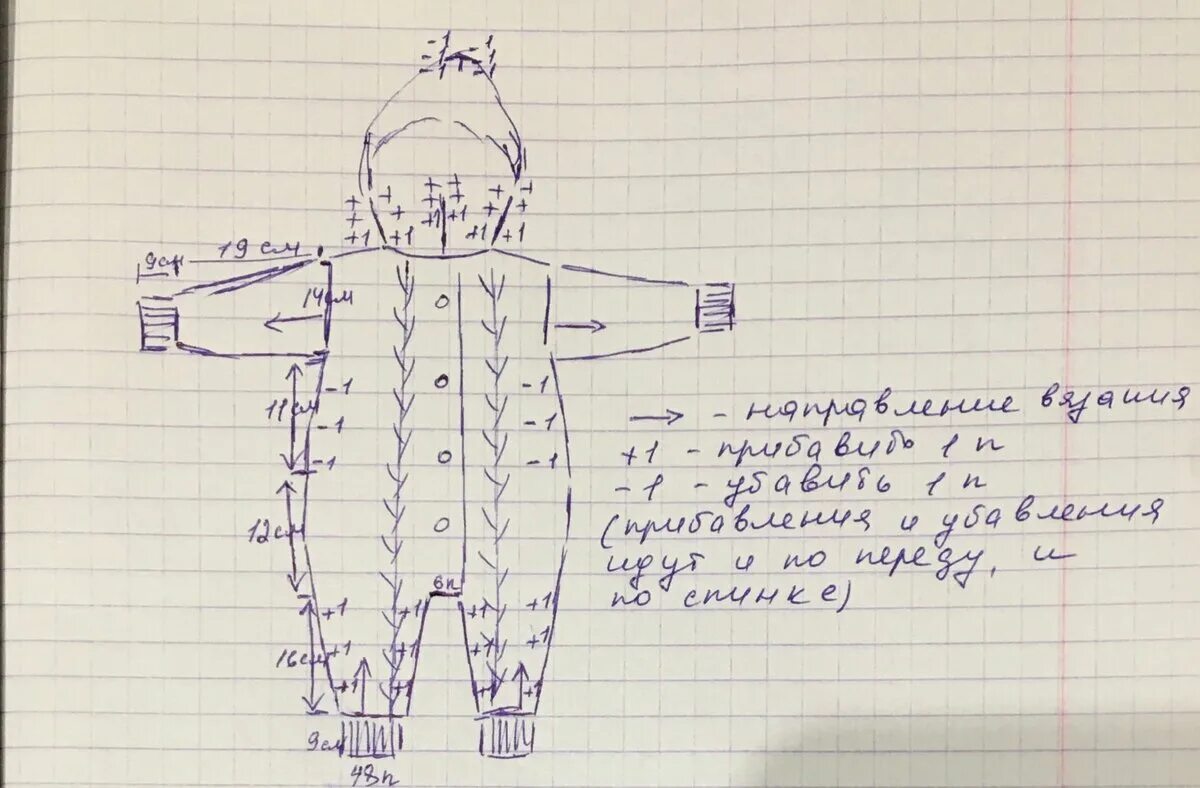 -1 -1
-1 -1
-1 -1
+ + + + + +
+ + + + + +
+1 +1 +1 +1 +1 +1
19 см
9см
14см
-1 -1
11 см
-1 -1
-1 -1
12см
6п
+1 +1 +1 +1
16см +1 +1 +1 +1
+1 +1 +1 +1
9см
48п
→ - направление вязания
+1 - прибавить 1 п
-1 - убавить 1 п
(прибавления и убавления
идут и по переду, и
по спинке)